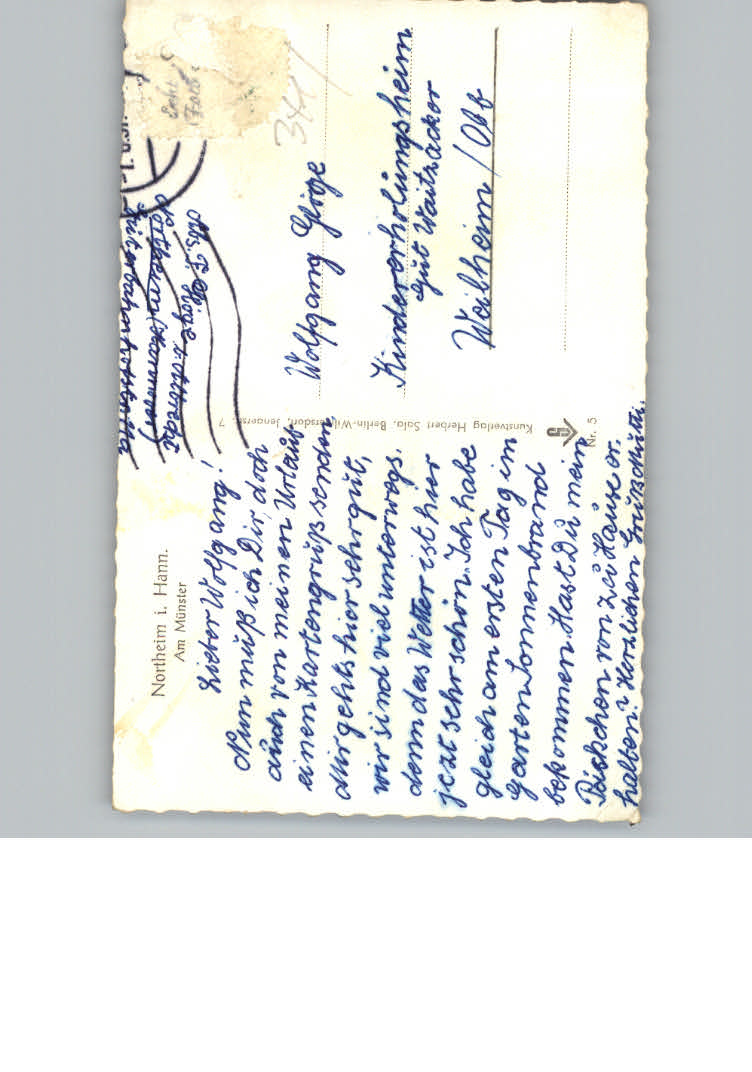 Northeim i. Hann.
Am Münster
Lieber Wolfgang!
Nun muß ich Dir doch
auch von meinen Urlaub
einen Kartengruß senden,
mir gehts hier sehr gut,
wir sind viel unterwegs.
denn das Wetter ist hier
jezt sehr schön. Ich habe
gleich am ersten Tag im
Garten Sonnenbrand
bekommen. Hast Du mein
Päckchen von zu Hause er
halten? Herzlichen Gruß
Kunstverlag Herbert Sala, Berlin-Wilmersdorf, Jenaerstr. 7
Nr. 5
Abs. F.
Northeim (Hannover)
Echt
Foto
3441
Wolfgang Gloge
Kindererholungsheim
Gut Waitzacker
Weilheim / Obb